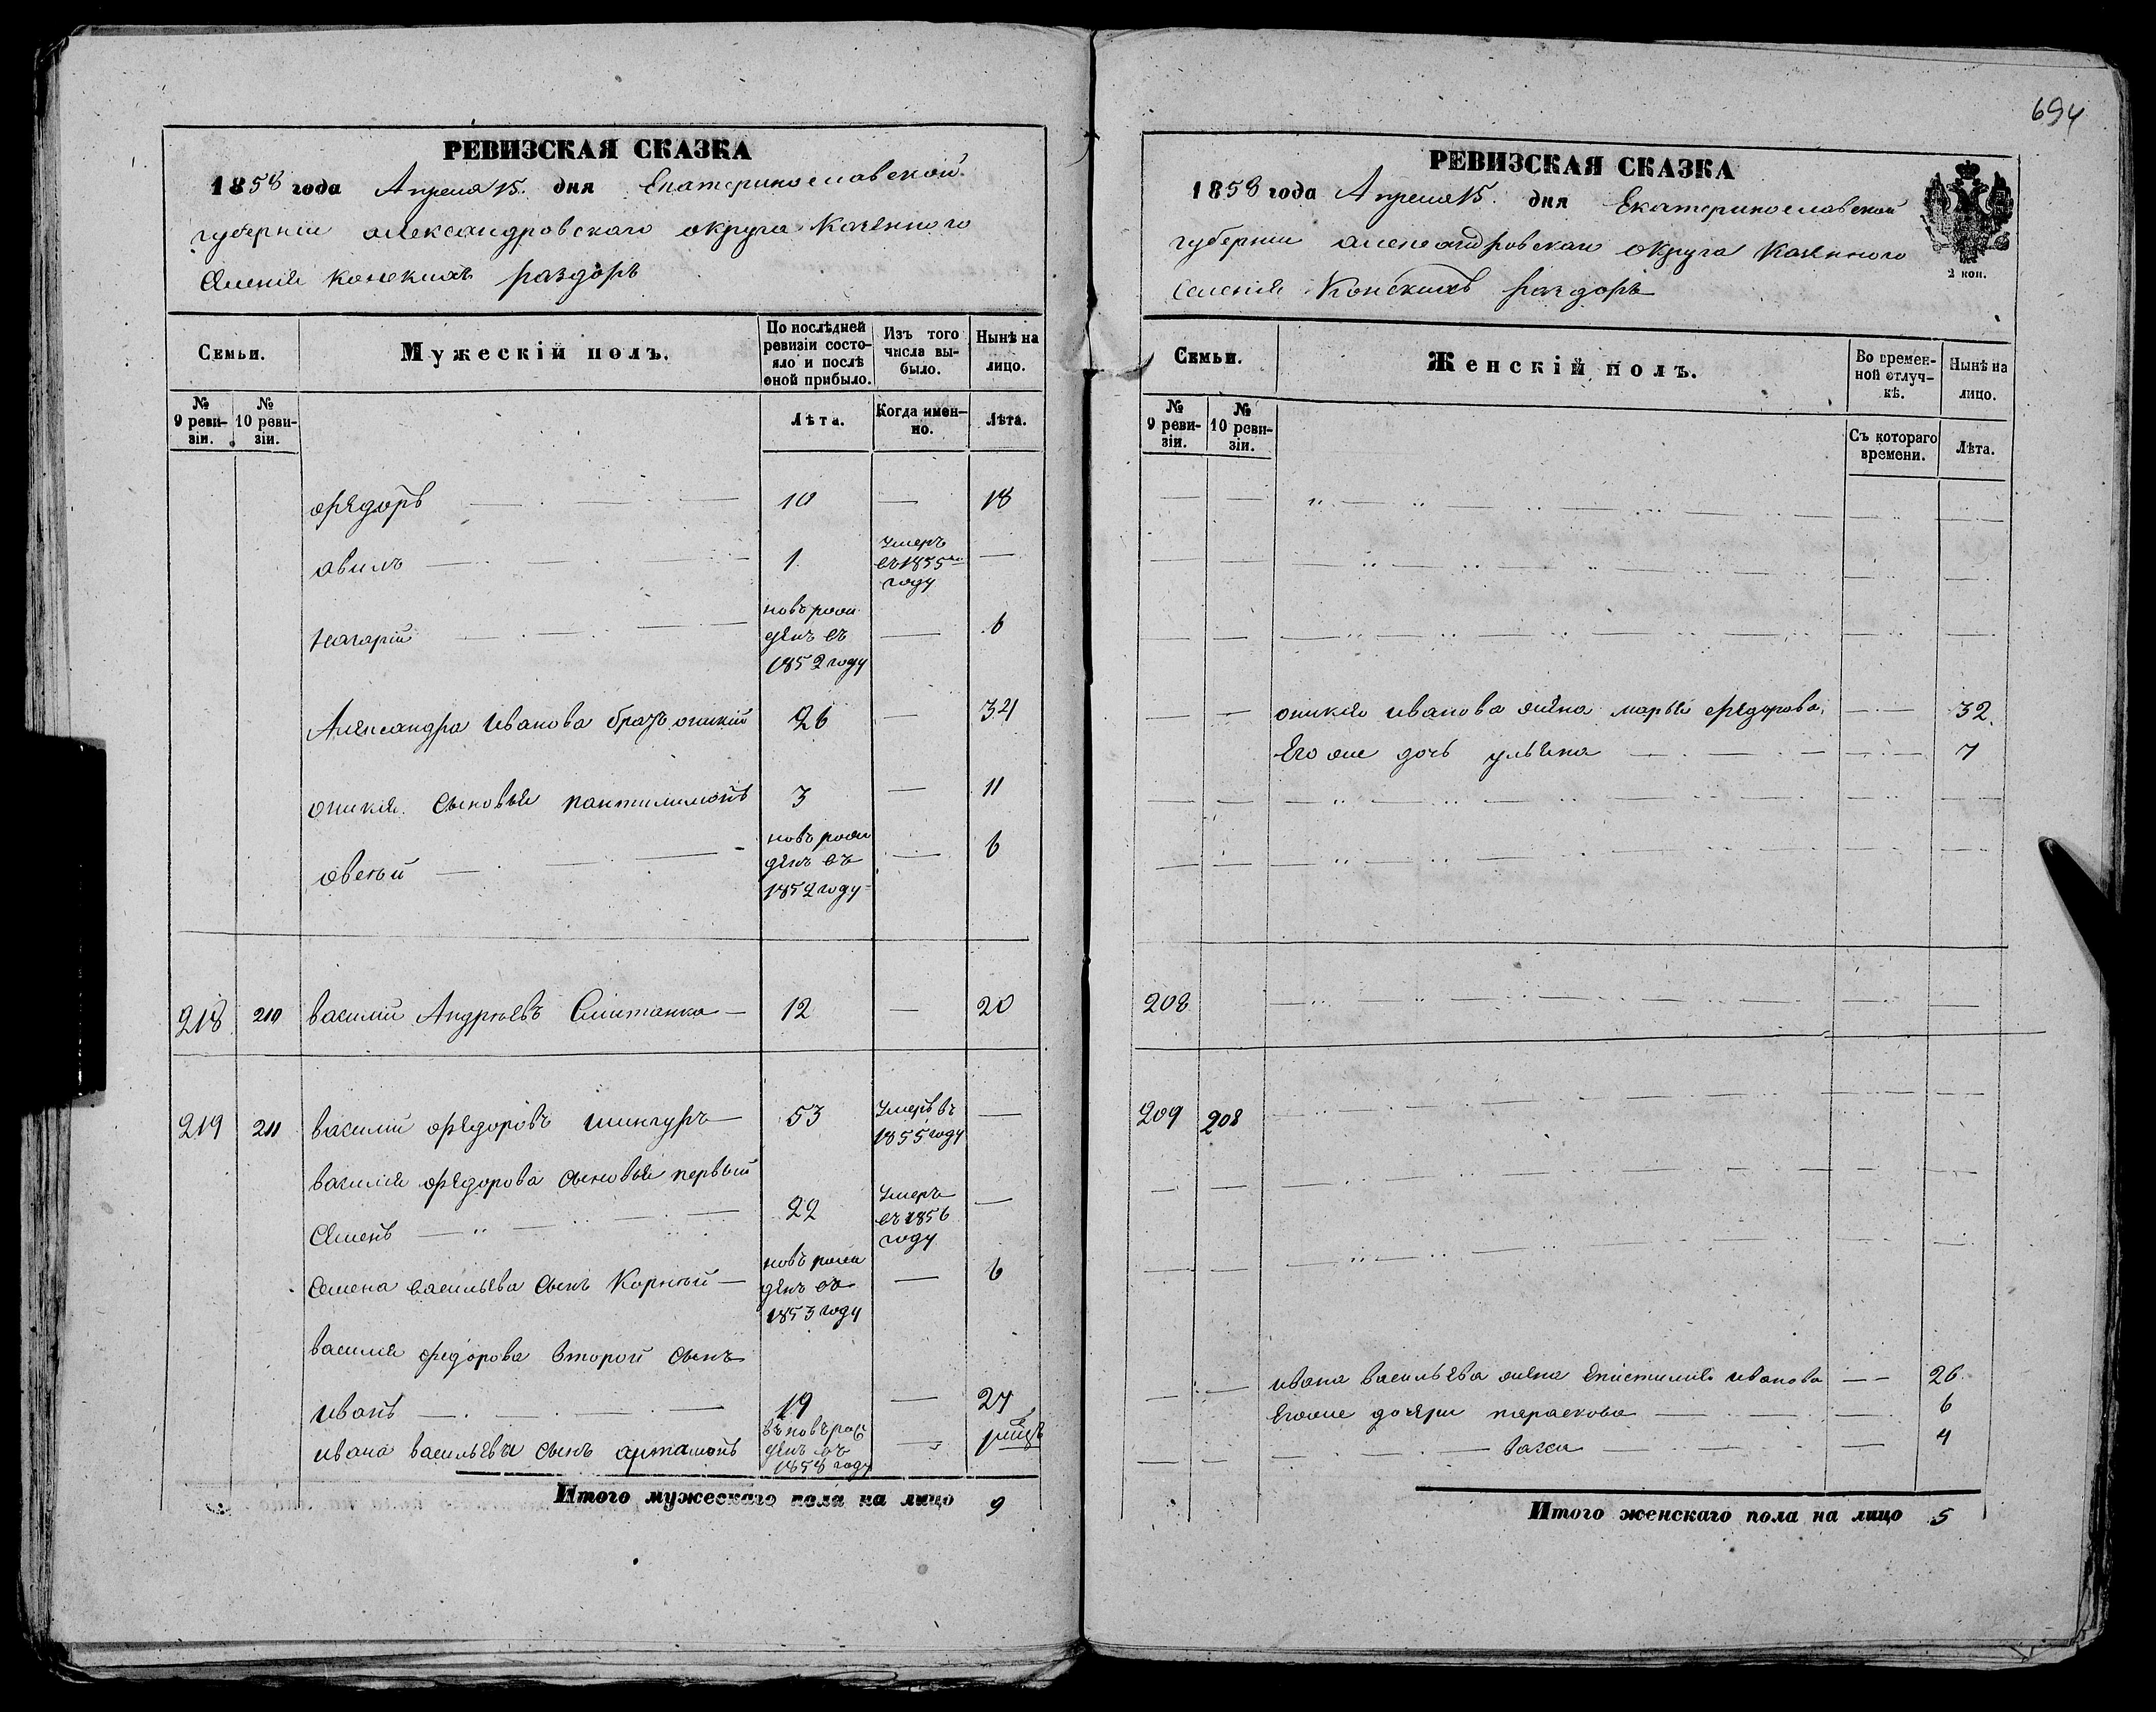 694
РЕВИЗСКАЯ СКАЗКА
1858 года Апреля 15. дня Екатеринославской
губерніи александровскаго округа Казенного
Селенія конскихъ раздоръ
Семьи.
Мужескій полъ.
По послѣдней ревизіи состояло и послѣ оной прибыло.
Изъ того числа выбыло.
Нынѣ на лицо.
№ 9 ревизіи.
№ 10 ревизіи.
Лѣта.
Когда именно.
Лѣта.
Федоръ 10 — 18
1. Умеръ въ 1855 году —
новърожденъ въ 1852 году — 6
Александра Иванова братъ оникій 26 — 34
оникія сыновья пантилимонъ 3 — 11
новърожденъ въ 1852 году — 6
218 210 василий Андреевъ Смитанка — 12 — 20
219 211 василий федоровъ шинкуръ 53 Умеръ въ 1855 году —
василия федорова сыновья первый
Семенъ 22 Умеръ въ 1856 году —
Семена васильева сынъ Корней — новърожденъ въ 1853 году — 6
василия федорова второй сынъ
иванъ 19 — 27
ивана васильева сынъ артамонъ новърожденъ въ 1858 году —
Итого мужескаго пола на лицо 9
РЕВИЗСКАЯ СКАЗКА
1858 года Апреля 15. дня Екатеринославской
губерніи александровскаго округа Казенного
Селенія Конскихъ раздоръ
2 коп.
Семьи.
Женскій полъ.
Во временной отлучкѣ.
Нынѣ на лицо.
№ 9 ревизіи.
№ 10 ревизіи.
Съ котораго времени.
Лѣта.
оникия иванова жена марья федорова 32.
Его же дочь ульяна 7
208
209 208
ивана васильева жена Епистимия иванова — 26.
Егоже дочери параскова 6
4
Итого женскаго пола на лицо 5